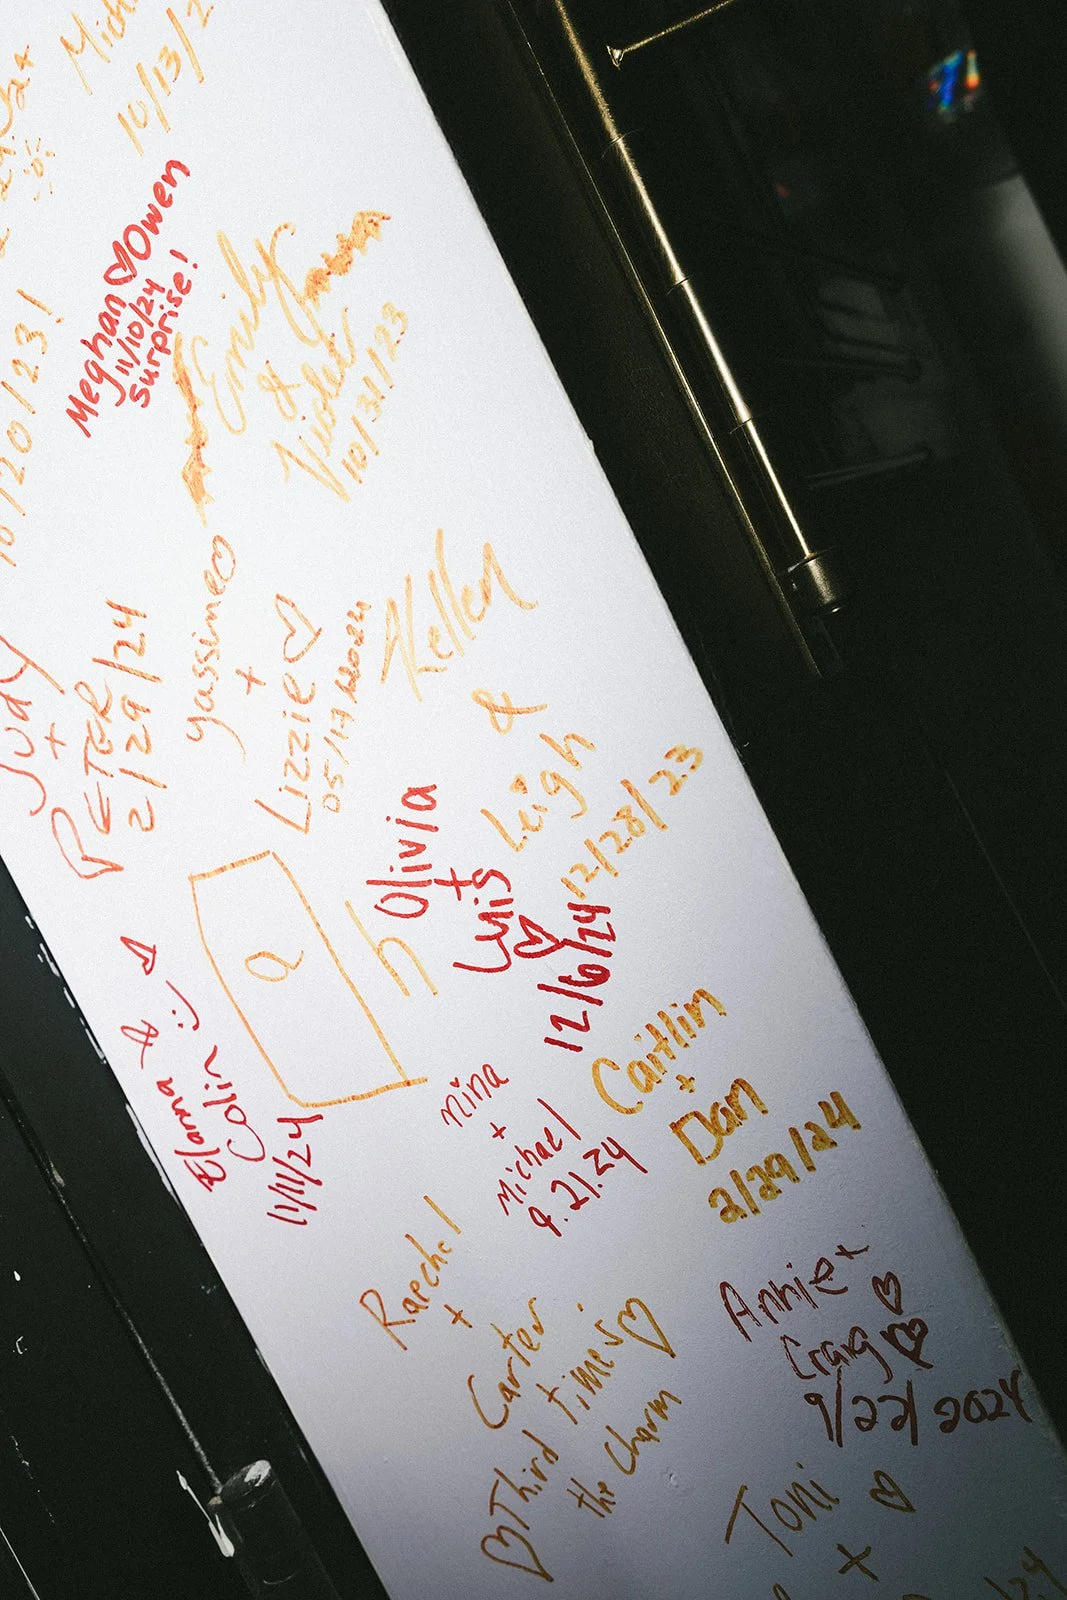 10/13/2
10/20/23!
Meghan ♡ Owen
11/10/24
Surprise!
Emily
&
Violet
10/31/23
Judy
+
PETER
2/29/24
yassine ♡
+
Lizzie ♡
05/17/2024
Kelley
&
Leigh
12/28/23
a
h
Olivia
+
Luis
♡
12/6/24
Caitlin
+
Dan
2/29/24
Colin :)
11/11/24
nina
+
Michael
9.21.24
Raechel
+
Carter
♡ Third Time's ♡
the Charm
Annie x
Craig
9/22/2024
Toni
+